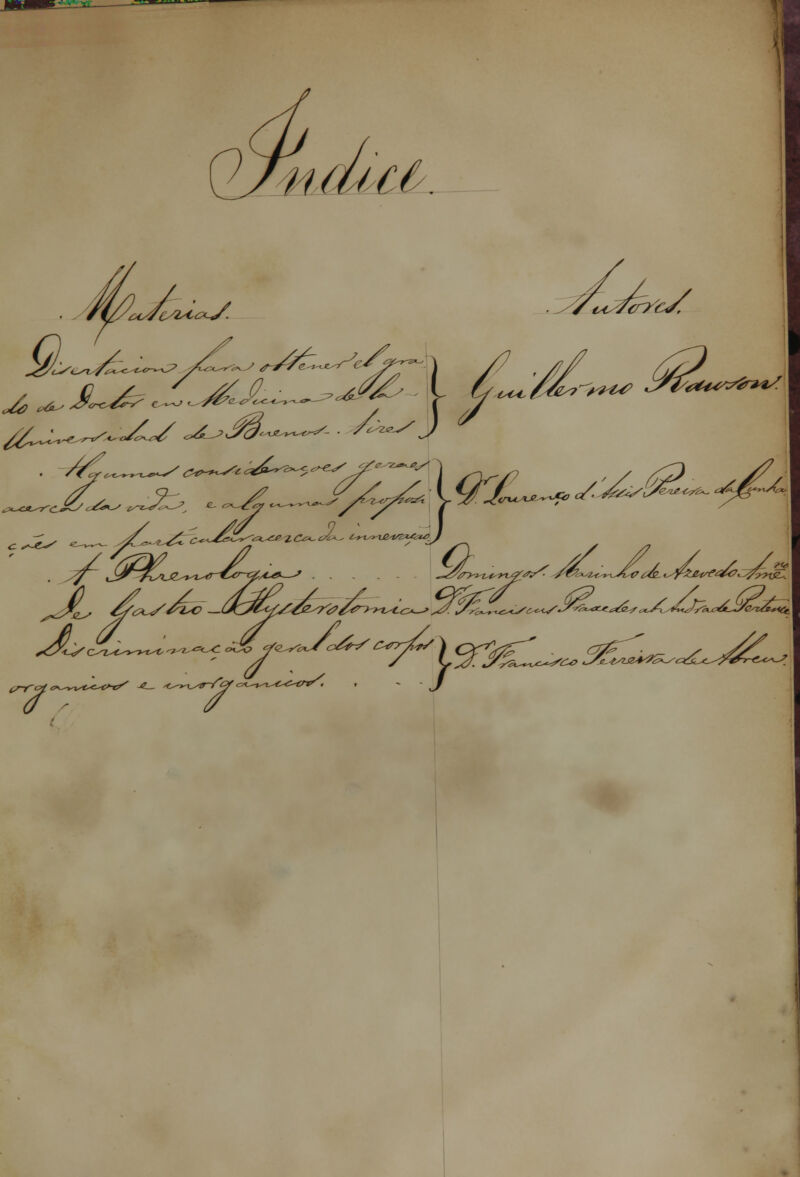 Indice.
Materias.
Autores.
Disertacion para obtener el gra
do de Doctor en Medicina de la
Universidad de Buenos-Aires
Guillermo Rawson.
Algumas considerações geraes
acerca da vida, e algumas proposi
ções em particular acerca da innervação
Dr. Lourenço d'Assis Pereira da Cunha
A Phrenologia . . . . . .
Domingos Marinho de Azevedo Ame.no
De Gastro-Hysterotomia
Dr. Franciscus Praxedes ab Andrade Pertence
Discriminação geral dos corpos
organicos e inorganicos. . - -
Dr. Francisco Ferreira de Abreu.